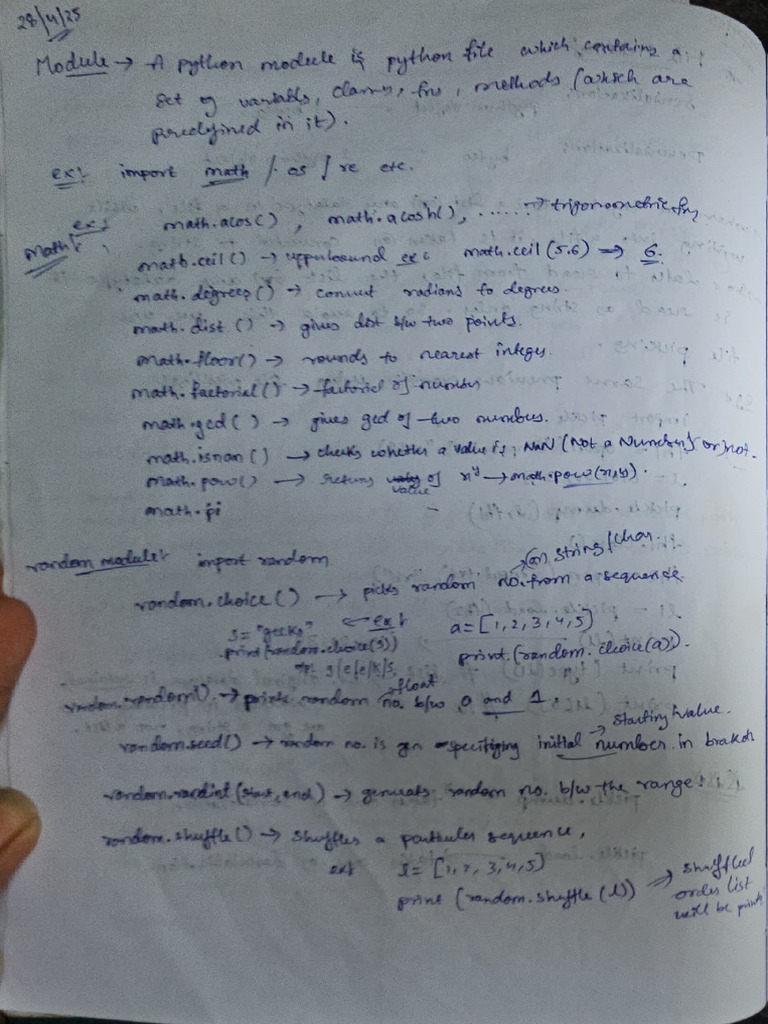 28/4/25
Module → A python module is python file which contains a
set of variables, classes, fns, methods (which are
predefined in it).
ex: import math / os / re etc.
ex:
math: math.acos(), math.acosh(), ...... → trigonometric fn
math.ceil() → upperbound ex: math.ceil(5.6) ⇒ 6.
math.degrees() → convert radians to degrees.
math.dist () → gives dist b/w two points.
math.floor() → rounds to nearest integer.
math.factorial() → factorial of number
math.gcd() → gives gcd of two numbers.
math.isnan() → checks whether a value is NaN (Not a Number) or not.
math.pow() → returns value of x^y → math.pow(x,y).
math.pi
random module: import random
→ (or) string/char.
random.choice() → picks random no. from a sequence.
ex: a = [1,2,3,4,5]
print(random.choice(a)).
s = "geeks"
print(random.choice(s))
g/e/e/k/s.
random.random() → prints random float no. b/w 0 and 1.
→ starting value.
random.seed() → random no. is gen specifying initial number in bracket
random.randint(start, end) → generates random no. b/w the range.
random.shuffle() → shuffles a particular sequence,
ex: l = [1,2,3,4,5]
print (random.shuffle(l)) → shuffled
order list
will be printed